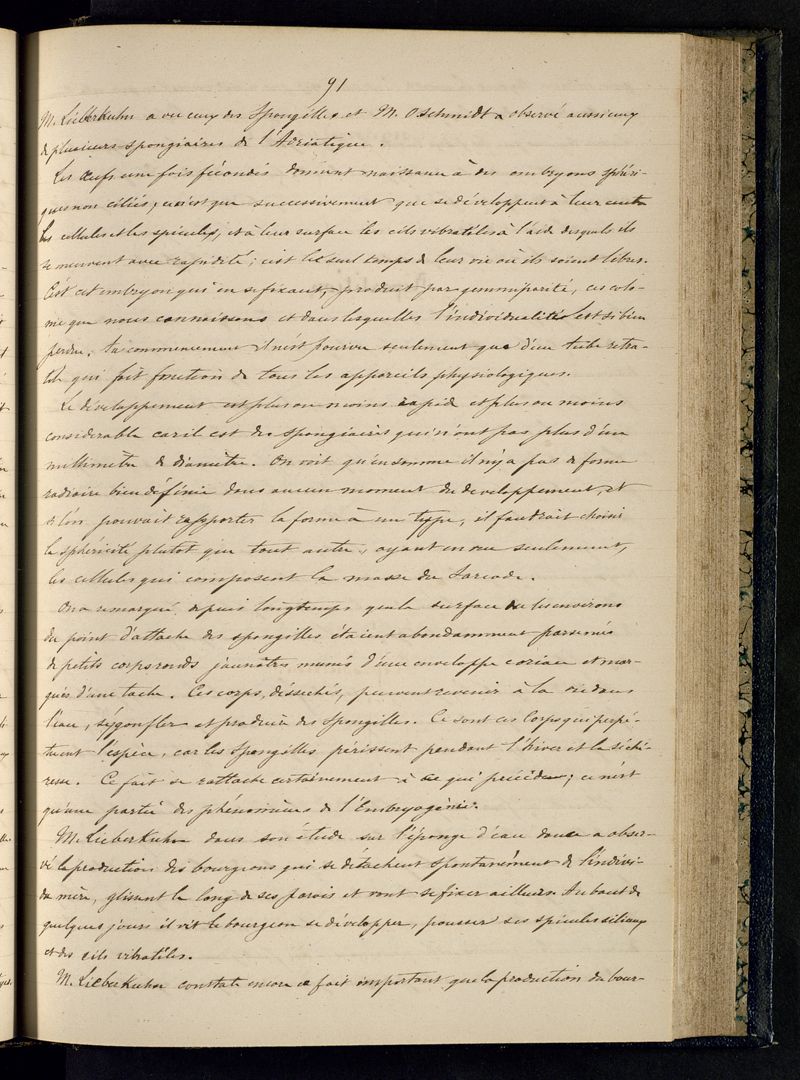 91
M. Lieberkuhn a vu ceux des Spongilles et M. O Schmidt a observé aussi ceux
de plusieurs spongiaires de l'Adriatique.
Les œufs une fois fécondés donnent naissance à des embryons sphéri-
ques non ciliés; ce n'est que successivement que se développent à leur centre
les cellules et les spicules, et à leur surface les cils vibratiles à l'aide desquels ils
se meuvent avec rapidité; c'est le seul temps de leur vie où ils soient libres.
C'est cet embryon qui en se fixant, produit par gemmiparité, ces colo-
nies que nous connaissons et dans lesquelles l'individualité est si bien
perdue. Au commencement il n'est pourvu seulement que d'un tube retra-
tile qui fait fonction de tous les appareils physiologiques.
Le développement est plus ou moins rapide et plus ou moins
considerable car il est des spongiaires qui n'ont pas plus d'un
millimètre de diamètre. On voit qu'en somme il n'y a pas de forme
radiaire bien définie dans aucun moment du developpement, et
si l'on pouvait rapporter la forme à un type, il faudrait choisir
la sphéricité plutot que tout autre, ayant en vue seulement,
les cellules qui composent la masse du Sarcode.
On a remarqué depuis longtemps que la surface ou les environs
du point d'attache des spongilles étaient abondamment parsemés
de petits corps ronds jaunâtres munis d'une enveloppe coriace et mar-
qués d'une tache. Ces corps, désséchés, peuvent revenir à la vie dans
l'eau, se gonfler et produire des Spongilles. Ce sont ces Corps qui perpé-
tuent l'espèce, car les Spongilles périssent pendant l'hiver et la séche-
resse. Ce fait se rattache certainement à ce qui précéde; ce n'est
qu'une partie des phénomènes de l'Embryogénie.
M. Lieberkuhn dans son étude sur l'éponge d'eau douce a obser-
vé la production des bourgeons qui se détachent spontanément de l'indivi-
du mère, glissent le long de ses parois et vont se fixer ailleurs. Au bout de
quelques jours il vit le bourgeon se développer, pousser ses spicules siliceux
et des cils vibratiles.
M. Lieberkuhn constate encore ce fait important que la production du bour-